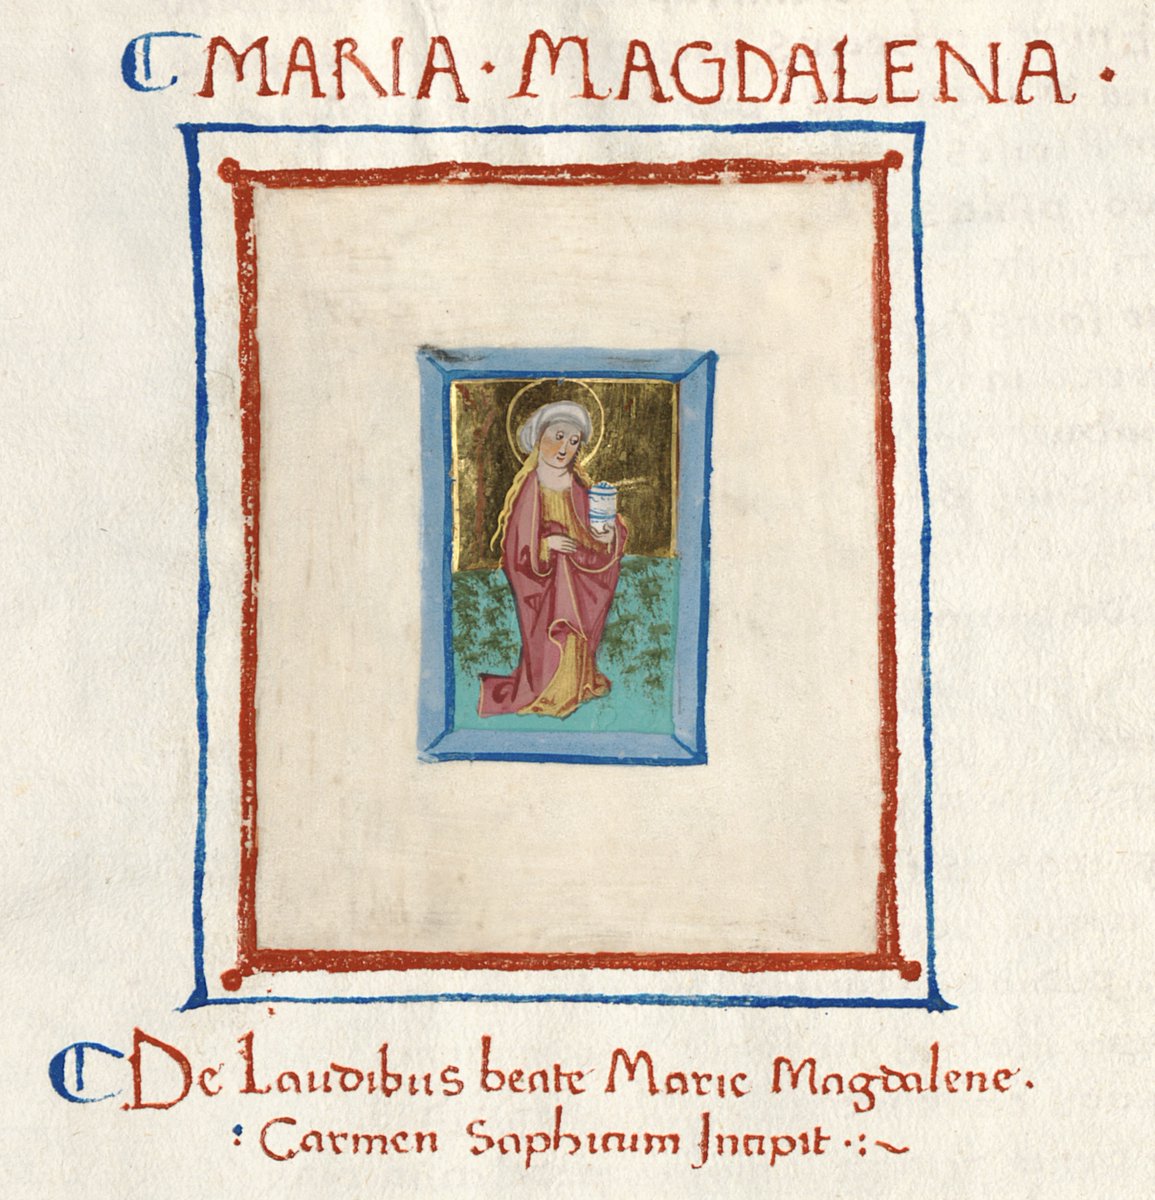 MARIA · MAGDALENA ·
De Laudibus beate Marie Magdalene.
: Carmen Saphicum Incipit ·:~